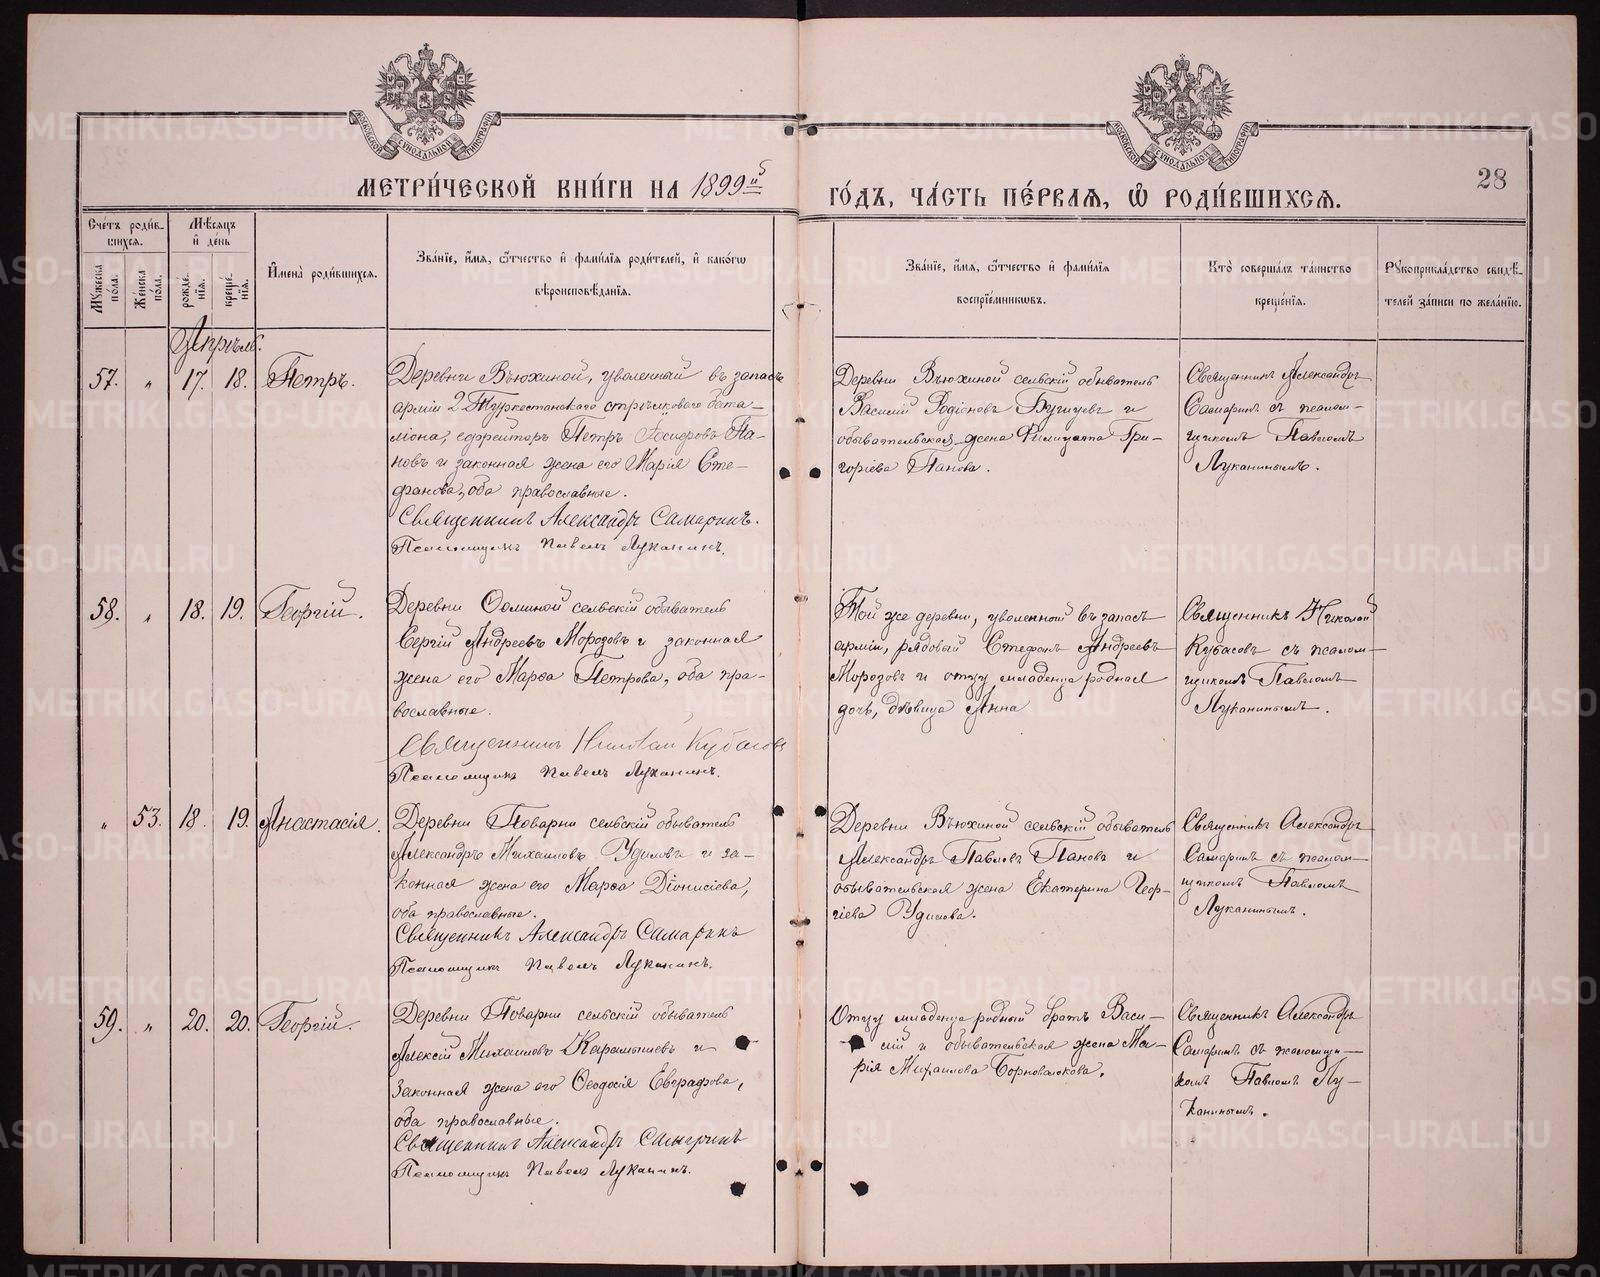 МОСКОВСКОЙ СУНОДАЛЬНОЙ ТИПОГРАФІИ
МОСКОВСКОЙ СУНОДАЛЬНОЙ ТИПОГРАФІИ
МЕТРИ́ЧЕСКОЙ КНИ́ГИ НА 1899ый ГО́ДЪ, ЧА́СТЬ ПЕ́РВАЯ, Ѿ РОДИ́ВШИХСЯ.
28
Сче́тъ роди́в-
шихся.
Мѣ́сяцъ
и҆ де́нь
Му́жеска по́ла.
Же́нска по́ла.
рожде́-
нїя.
креще́-
нїя.
И҆мена̀ роди́вшихся.
Зва́нїе, и҆́мя, ѻ҆́тчество и҆ фами́лїя роди́телей, и҆ како́гѡ
вѣроисповѣ́данїя.
Зва́нїе, и҆́мя, ѻ҆́тчество и҆ фами́лїя
воспрїе́мникѡвъ.
Кто̀ соверша́лъ та́инство
креще́нїя.
Рꙋкоприкла́дство свидѣ́-
телей за́писи по жела́нїю.
Апрѣль.
57. „ 17. 18. Петръ.
Деревни Вьюхиной, уволенный въ запасъ
арміи 2 Туркестанскаго стрѣлковаго бата-
ліона, ефрейторъ Петръ Іосифовъ Па-
новъ и законная жена его Марія Сте-
фанова, оба православные.
Священникъ Александръ Самаринъ.
Псаломщикъ Павелъ Луканинъ.
Деревни Вьюхиной сельскій обыватель
Василій Родіоновъ и
обывательская жена Филицата Гри-
горіева Панова.
Священникъ Александръ
Самаринъ съ псалом-
щикомъ Павломъ
Луканинымъ.
58. „ 18. 19. Георгій.
Деревни Ѳоминой сельскій обыватель
Сергій Андреевъ Морозовъ и законная
жена его Марѳа Петрова, оба пра-
вославные.
Священникъ Николай Кубасовъ
Псаломщикъ Павелъ Луканинъ.
Той же деревни, уволенной въ запасъ
арміи, рядовый Стефанъ Андреевъ
Морозовъ и отцу младенца родная
дочь, дѣвица Анна
Священникъ Николай
Кубасовъ съ псалом-
щикомъ Павломъ
Луканинымъ.
„ 53. 18. 19. Анастасія.
Деревни Поварни сельскій обыватель
Александръ Михаиловъ Удиловъ и за-
конная жена его Марѳа Діонисіева,
оба православные.
Священникъ Александръ Самаринъ
Псаломщикъ Павелъ Луканинъ.
Деревни Вьюхиной сельскій обыватель
Александръ Павловъ Пановъ и
обывательская жена Екатерина Геор-
гіева Удилова.
Священникъ Александръ
Самаринъ съ псалом-
щикомъ Павломъ
Луканинымъ.
59. „ 20. 20. Георгій.
Деревни Поварни сельскій обыватель
Алексій Михаиловъ Карамышевъ и
законная жена его Ѳеодосія Евграфова,
оба православные.
Священникъ Александръ Самаринъ
Псаломщикъ Павелъ Луканинъ.
Отцу младенца родный братъ Васи-
лій и обывательская жена Ма-
рія Михаилова Борноволокова.
Священникъ Александръ
Самаринъ съ псаломщи-
комъ Павломъ Лу-
канинымъ.
METRIKI.GASO-URAL.RU